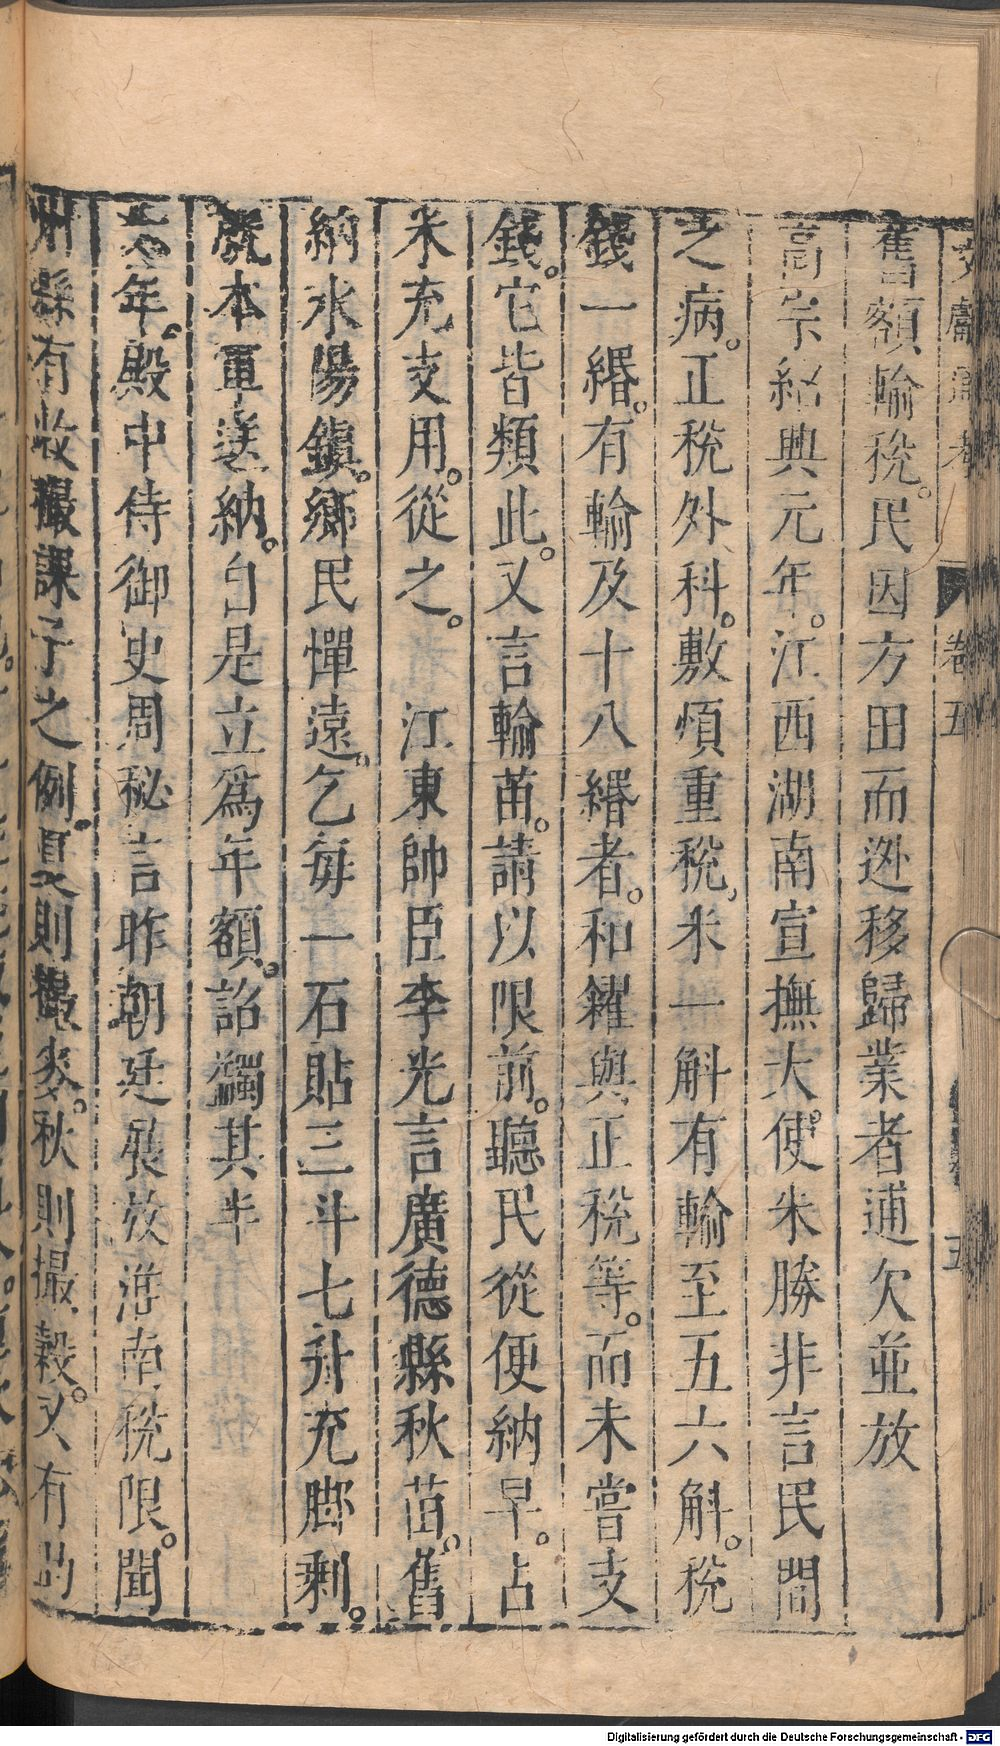 文獻通考 卷五 五
舊額輸稅。民因方田而迯移歸業者逋欠並放
高宗紹興元年。江西湖南宣撫大使。朱勝非言民間
之病。正稅外科。敷煩重稅，米一斛有輸至五六斛。稅
錢一緡。有輸及十八緡者。和糴與正稅等。而未嘗支
錢。它皆類此。又言輸苗。請以限前。聽民從便納早。占
米充支用。從之。 江東帥臣李光言廣德縣秋苗。舊
納水陽鎮。鄉民憚遠。乞每一石貼三斗七升充腳剩。
就本軍送納。自是立爲年額。詔蠲其半
五年。殿中侍御史周秘言昨朝廷展放淮南稅限。聞
州縣有收撮課子之例。夏則撮麥。秋則撮穀。又有的
Digitalisierung gefördert durch die Deutsche Forschungsgemeinschaft - DFG